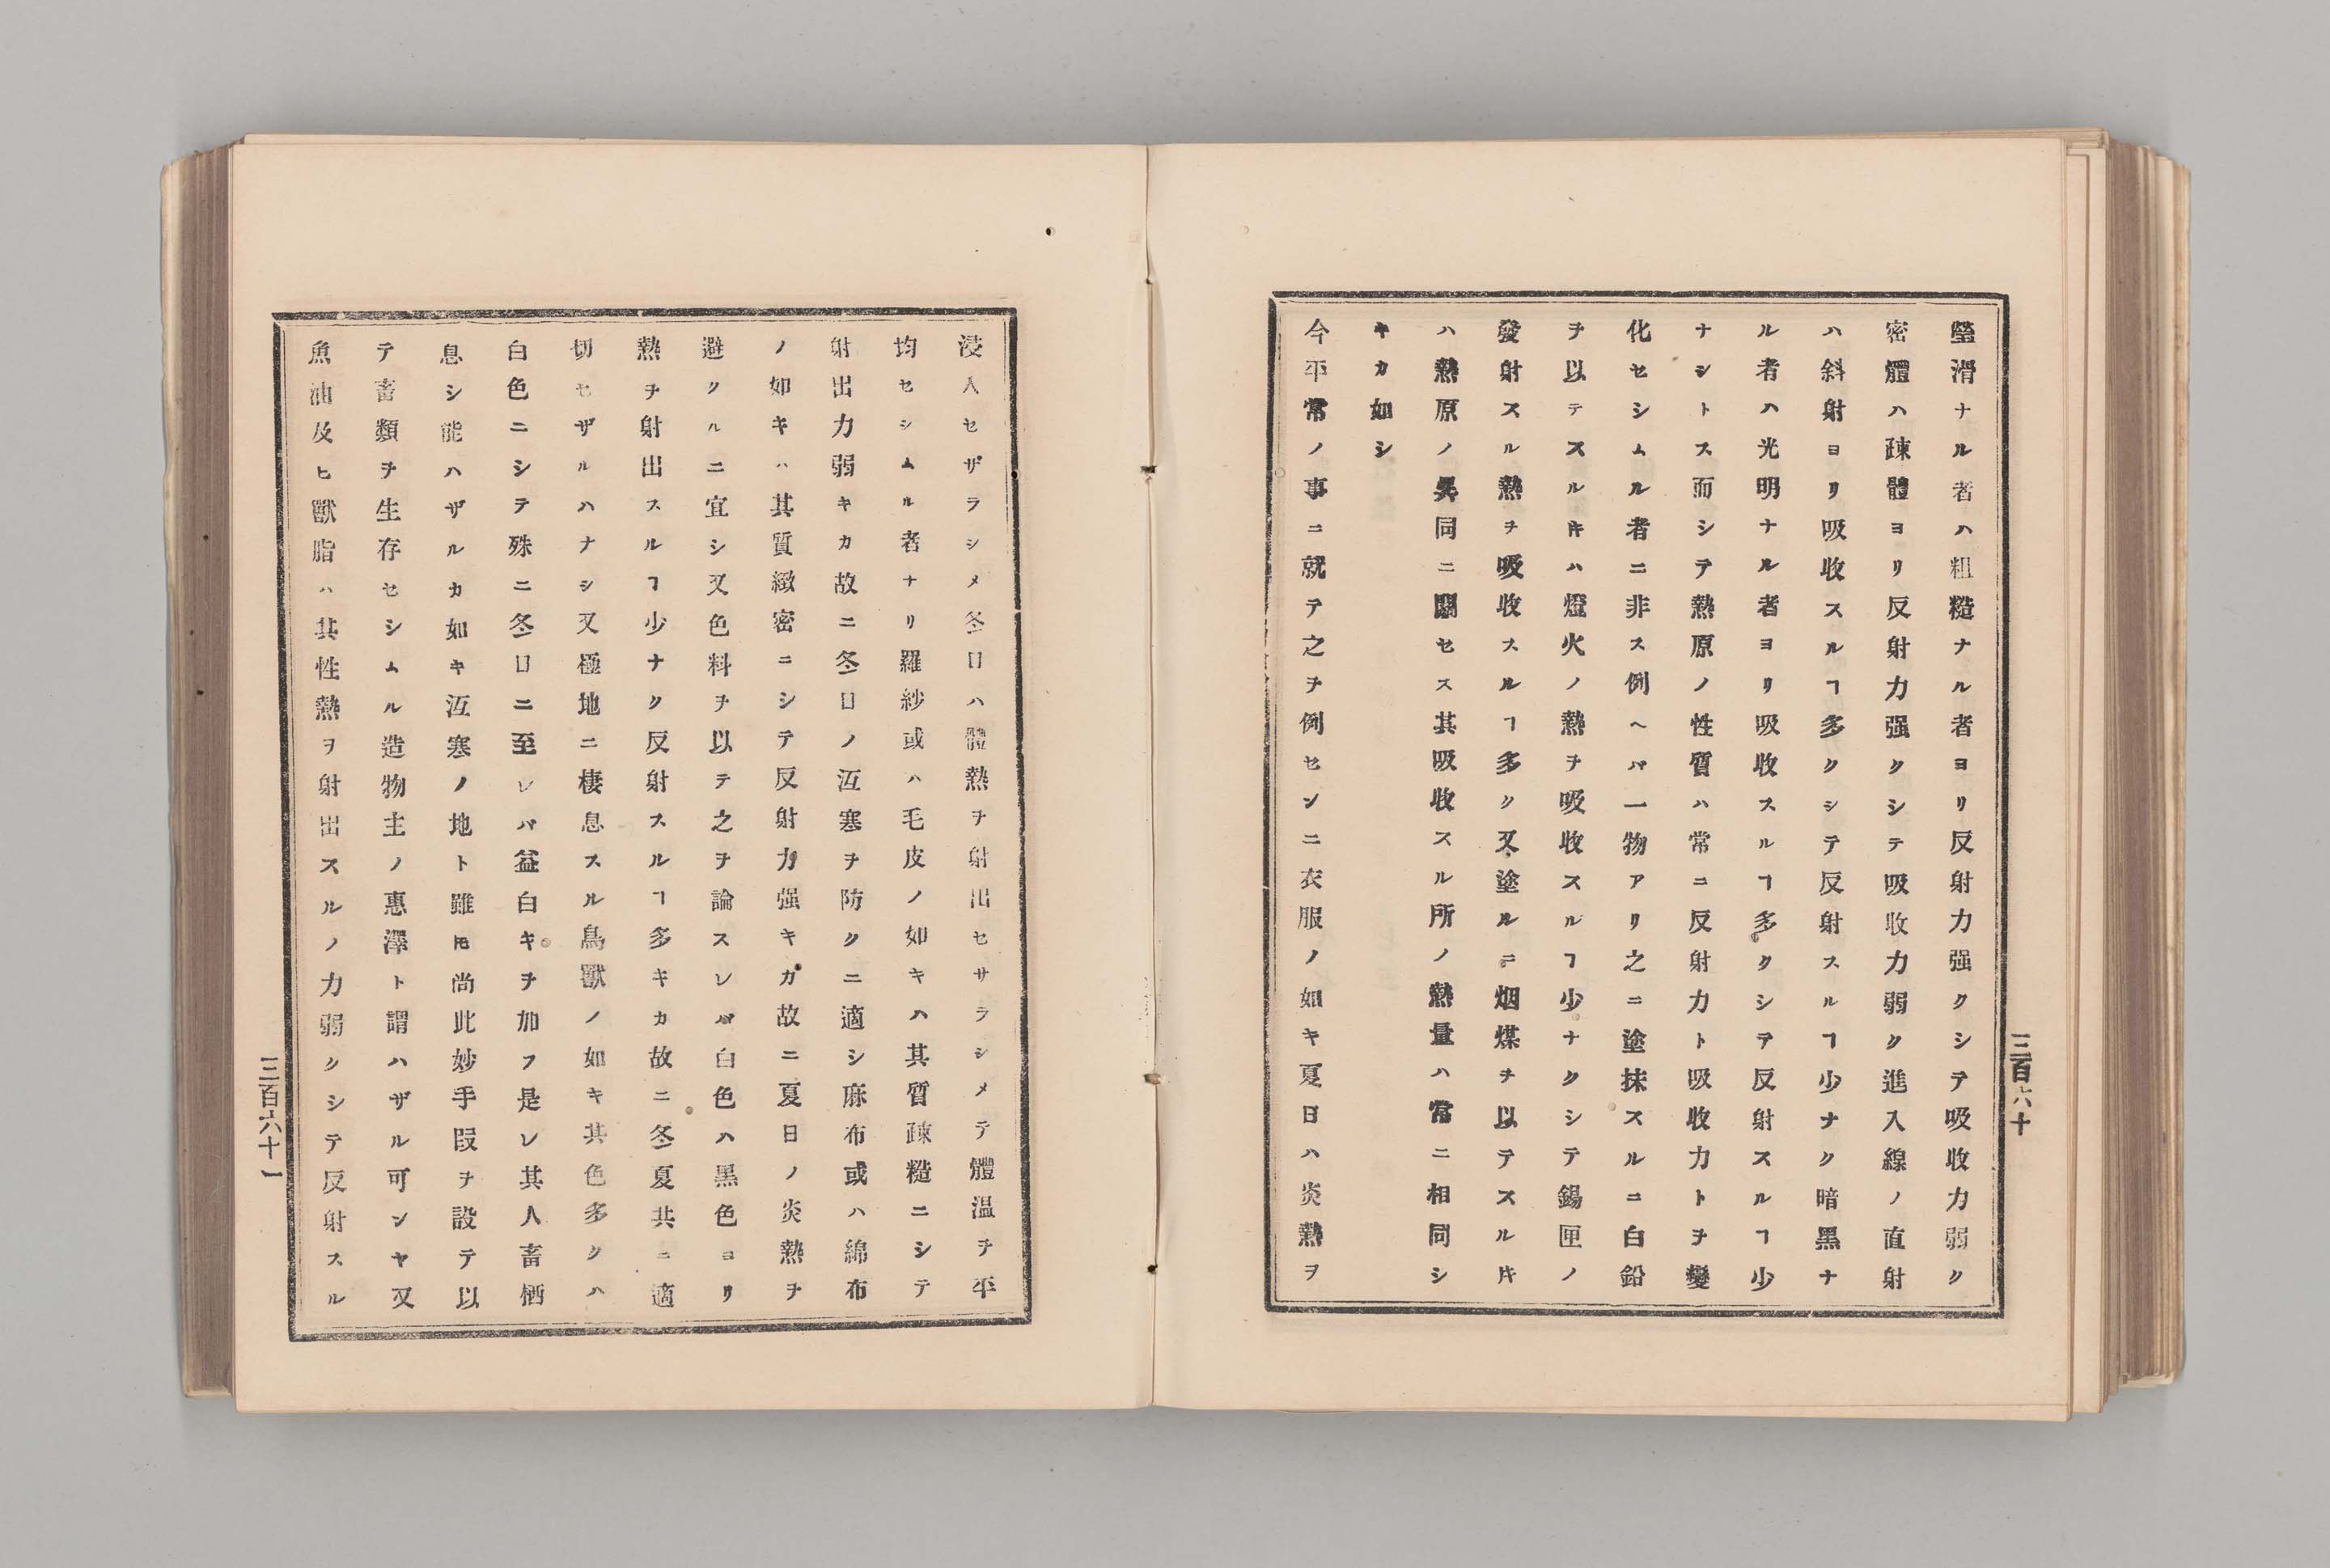 瑩滑ナル者ハ粗糙ナル者ヨリ反射力强クシテ吸收力弱ク
密體ハ疎體ヨリ反射力强クシテ吸收力弱ク進入線ノ直射
ハ斜射ヨリ吸收スルヿ多クシテ反射スルヿ少ナク暗黑ナ
ル者ハ光明ナル者ヨリ吸收スルヿ多クシテ反射スルヿ少
ナシトス而シテ熱原ノ性質ハ常ニ反射力ト吸收力トヲ變
化セシムル者ニ非ス例ヘバ一物アリ之ニ塗抹スルニ白鉛
ヲ以テスルキハ燈火ノ熱ヲ吸收スルヿ少ナクシテ錫匣ノ
發射スル熱ヲ吸收スルヿ多ク又塗ルニ烟煤ヲ以テスルキ
ハ熱原ノ異同ニ關セス其吸收スル所ノ熱量ハ常ニ相同シ
キカ如シ
今平常ノ事ニ就テ之ヲ例センニ衣服ノ如キ夏日ハ炎熱ヲ
三百六十
浸入セザラシメ冬日ハ體熱ヲ射出セサラシメテ體温ヲ平
均セシムル者ナリ羅紗或ハ毛皮ノ如キハ其質疎糙ニシテ
射出力弱キカ故ニ冬日ノ沍寒ヲ防クニ適シ麻布或ハ綿布
ノ如キハ其質緻密ニシテ反射力强キガ故ニ夏日ノ炎熱ヲ
避クルニ宜シ又色料ヲ以テ之ヲ論スレバ白色ハ黑色ヨリ
熱ヲ射出スルヿ少ナク反射スルヿ多キカ故ニ冬夏共ニ適
切セザルハナシ又極地ニ棲息スル鳥獸ノ如キ其色多クハ
白色ニシテ殊ニ冬日ニ至レバ益白キヲ加フ是レ其人畜栖
息シ能ハザルカ如キ沍寒ノ地ト雖𪜈尚此妙手段ヲ設テ以
テ畜類ヲ生存セシムル造物主ノ惠澤ト謂ハザル可ンヤ又
魚油及ヒ獸脂ハ其性熱ヲ射出スルノ力弱クシテ反射スル
三百六十一